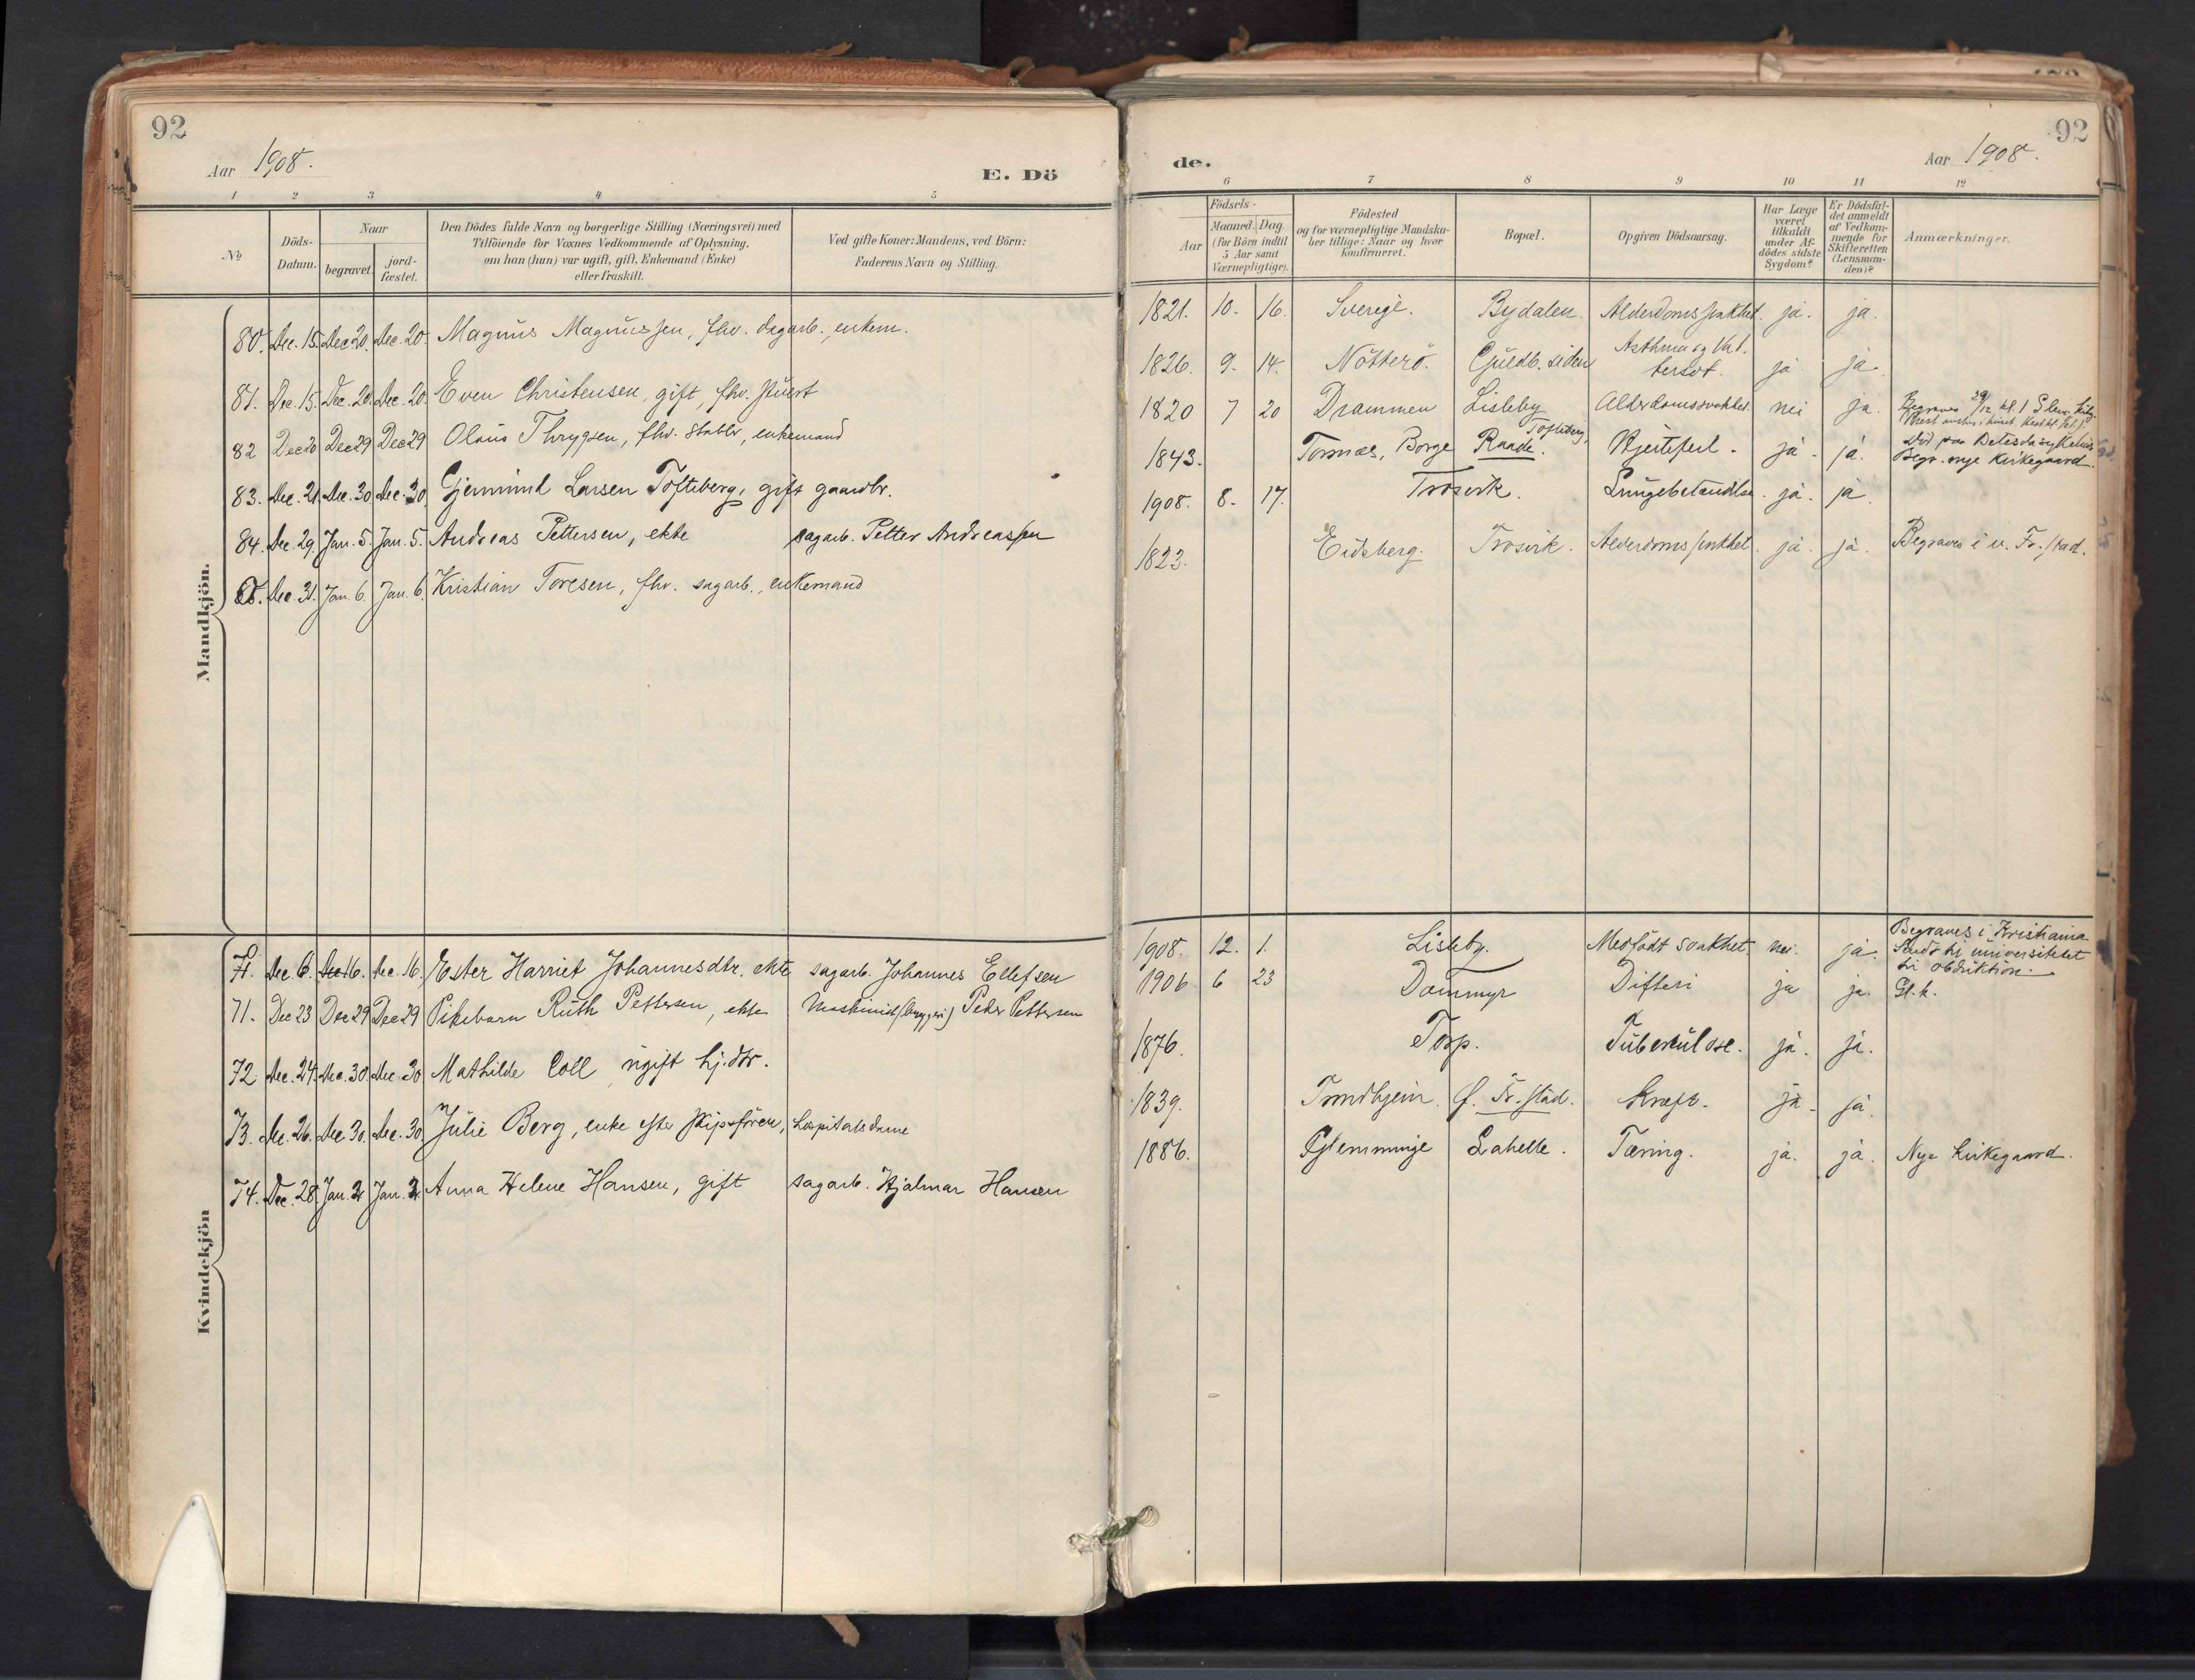 92
Aar 1908.
E. Dö
1 2 3 4 5
No
Döds-Datum.
Naar
begravet.
jord-fæstet.
Den Dödes fulde Navn og borgerlige Stilling (Næringsvei) med
Tilföiende for Voxnes Vedkommende af Oplysning,
om han (hun) var ugift, gift, Enkemand (Enke)
eller fraskilt.
Ved gifte Koner: Mandens, ved Börn:
Faderens Navn og Stilling.
Mandkjön.
80. Dec. 15. Dec 20. Dec. 20. Magnus Magnussen, fhv. dagarb., enkem.
81. Dec. 15. Dec. 20. Dec. 20. Even Christensen, gift, fhv.
82 Dec 20 Dec 29 Dec 29 Olaus Thrygsen, fhv. stabler, enkemand
83. Dec. 21. Dec. 30 Dec. 30. Gjermund Larsen Tofteberg, gift gaardbr.
84. Dec. 29. Jan. 5. Jan. 5. Andreas Pettersen, ekte sagarb. Petter Andreassen
85. Dec. 31. Jan. 6. Jan. 6. Kristian Toresen, fhv. sagarb., enkemand
Kvindekjön
71. Dec. 6. Dec. 16. Dec. 16. Ester Harriet Johannesdtr. ekte sagarb. Johannes Ellefsen
71. Dec 23 Dec 29 Dec 29 Pikebarn Ruth Pettersen, ekte Maskinist (bryggeri) Peder Pettersen
72 Dec. 24. Dec. 30. Dec. 30 Mathilde Coll ugift hj. dtr.
73. Dec. 26. Dec. 30. Dec. 30. Julie Berg, enke efter skipsfören, Hospitalsdame
74. Dec. 28. Jan. 2. Jan. 2. Anna Helene Hansen, gift sagarb. Hjalmar Hansen
92
de.
Aar 1908.
6 7 8 9 10 11 12
Födsels-
Aar
Maaned. Dag.
(for Börn indtil
5 Aar samt
Værnepligtige).
Födested
og for værnepligtige Mandska-
ber tillige: Naar og hvor
Konfirmeret.
Bopæl.
Opgiven Dödsaarsag.
Har Læge
været
tilkaldt
under Af-
dödes sidste
Sygdom?
Er Dödsfal-
det anmeldt
af Vedkom-
mende for
Skifteretten
(Lensman-
den)?
Anmærkninger.
1821. 10. 16. Sverige. Bydalen. Alderdomssvakhet. ja. ja.
1826. 9. 14. Nötterö. Guldb. siden Asthma og Vat.
tersot. ja ja.
1820 7 20 Drammen Lisleby Alderdomssvakhet. nei ja. Begraves 29/12 kl. 1
1843. Tornæs, Borge Tofteberg, Raade. Hjertefeil. ja. ja. Död paa
Begr. nye Kirkegaard.
1908. 8. 17. Trosvik. Lungebetændelse. ja. ja
1823. Eidsberg. Trosvik. Alderdomssvakhet. ja. ja. Begraves i v. Fr.stad.
1908. 12. 1. Lisleby. Medfödt svakhet. nei. ja. Begraves i Kristiania
Sendt til universitetet
til obduktion.
1906 6 23 Dammyr Difteri ja ja. Gl. k.
1876. Torp. Tuberkulose. ja. ja.
1839. Trondhjem. f. Fr.stad. Kræft. ja. ja.
1886. Glemminge Lahelle. Tæring. ja. ja. Nye Kirkegaard.